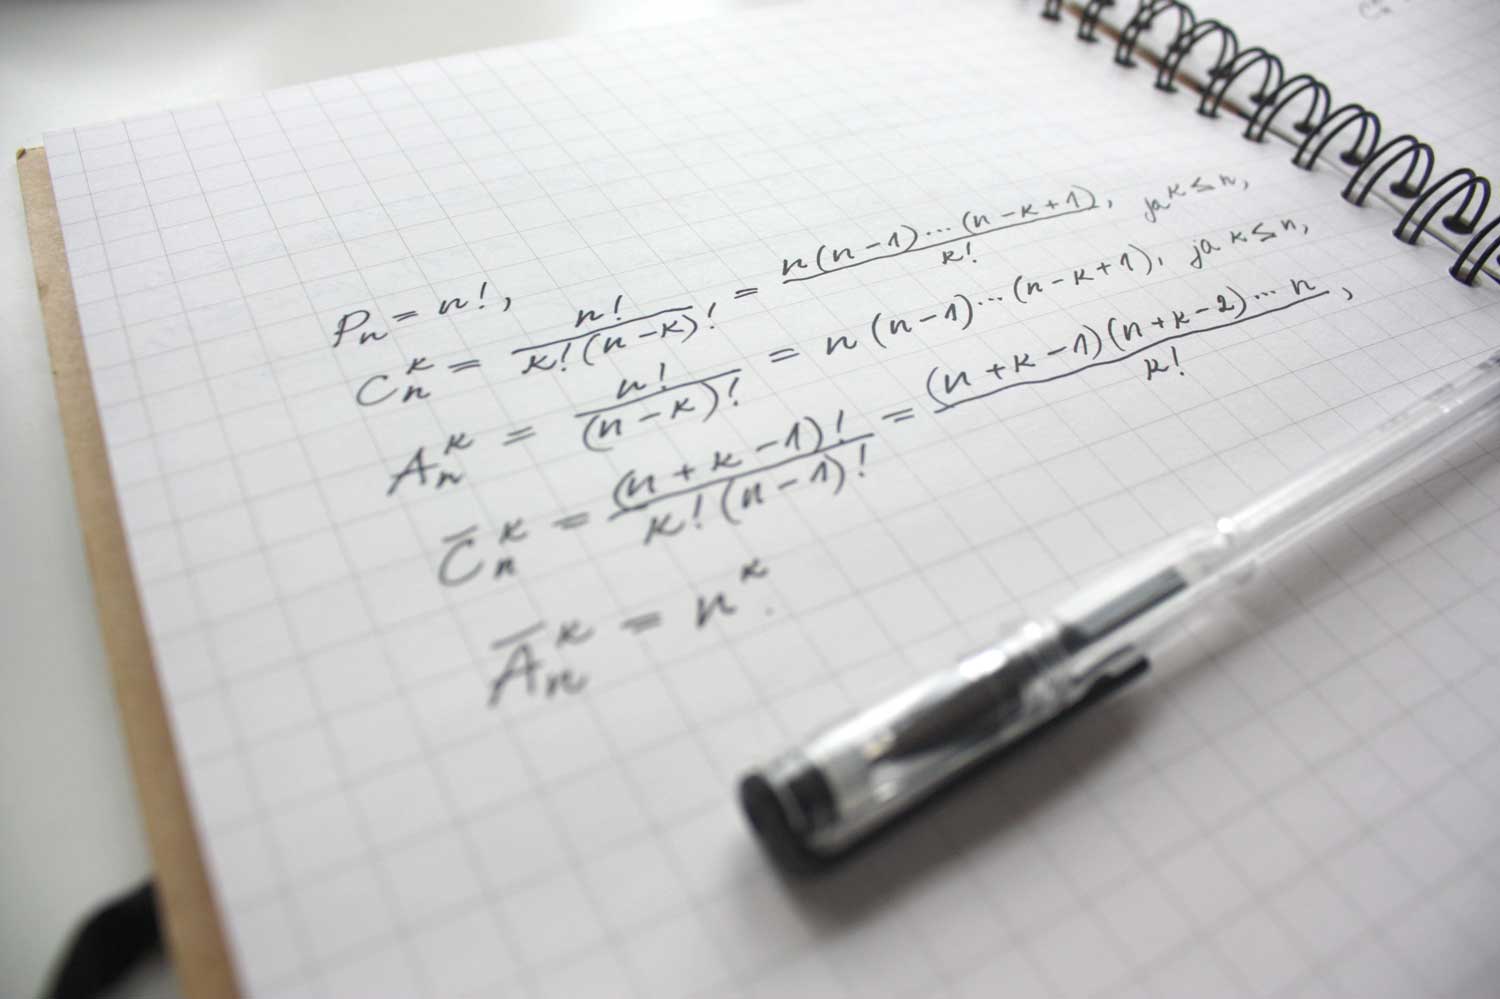 Pₙ = n!,
Cₙᵏ = n! / k!(n-k)! = n(n-1)...(n-k+1) / k!, ja k ≤ n,
Aₙᵏ = n! / (n-k)! = n(n-1)...(n-k+1), ja k ≤ n,
C̅ₙᵏ = (n+k-1)! / k!(n-1)! = (n+k-1)(n+k-2)...n / k!,
A̅ₙᵏ = nᵏ.